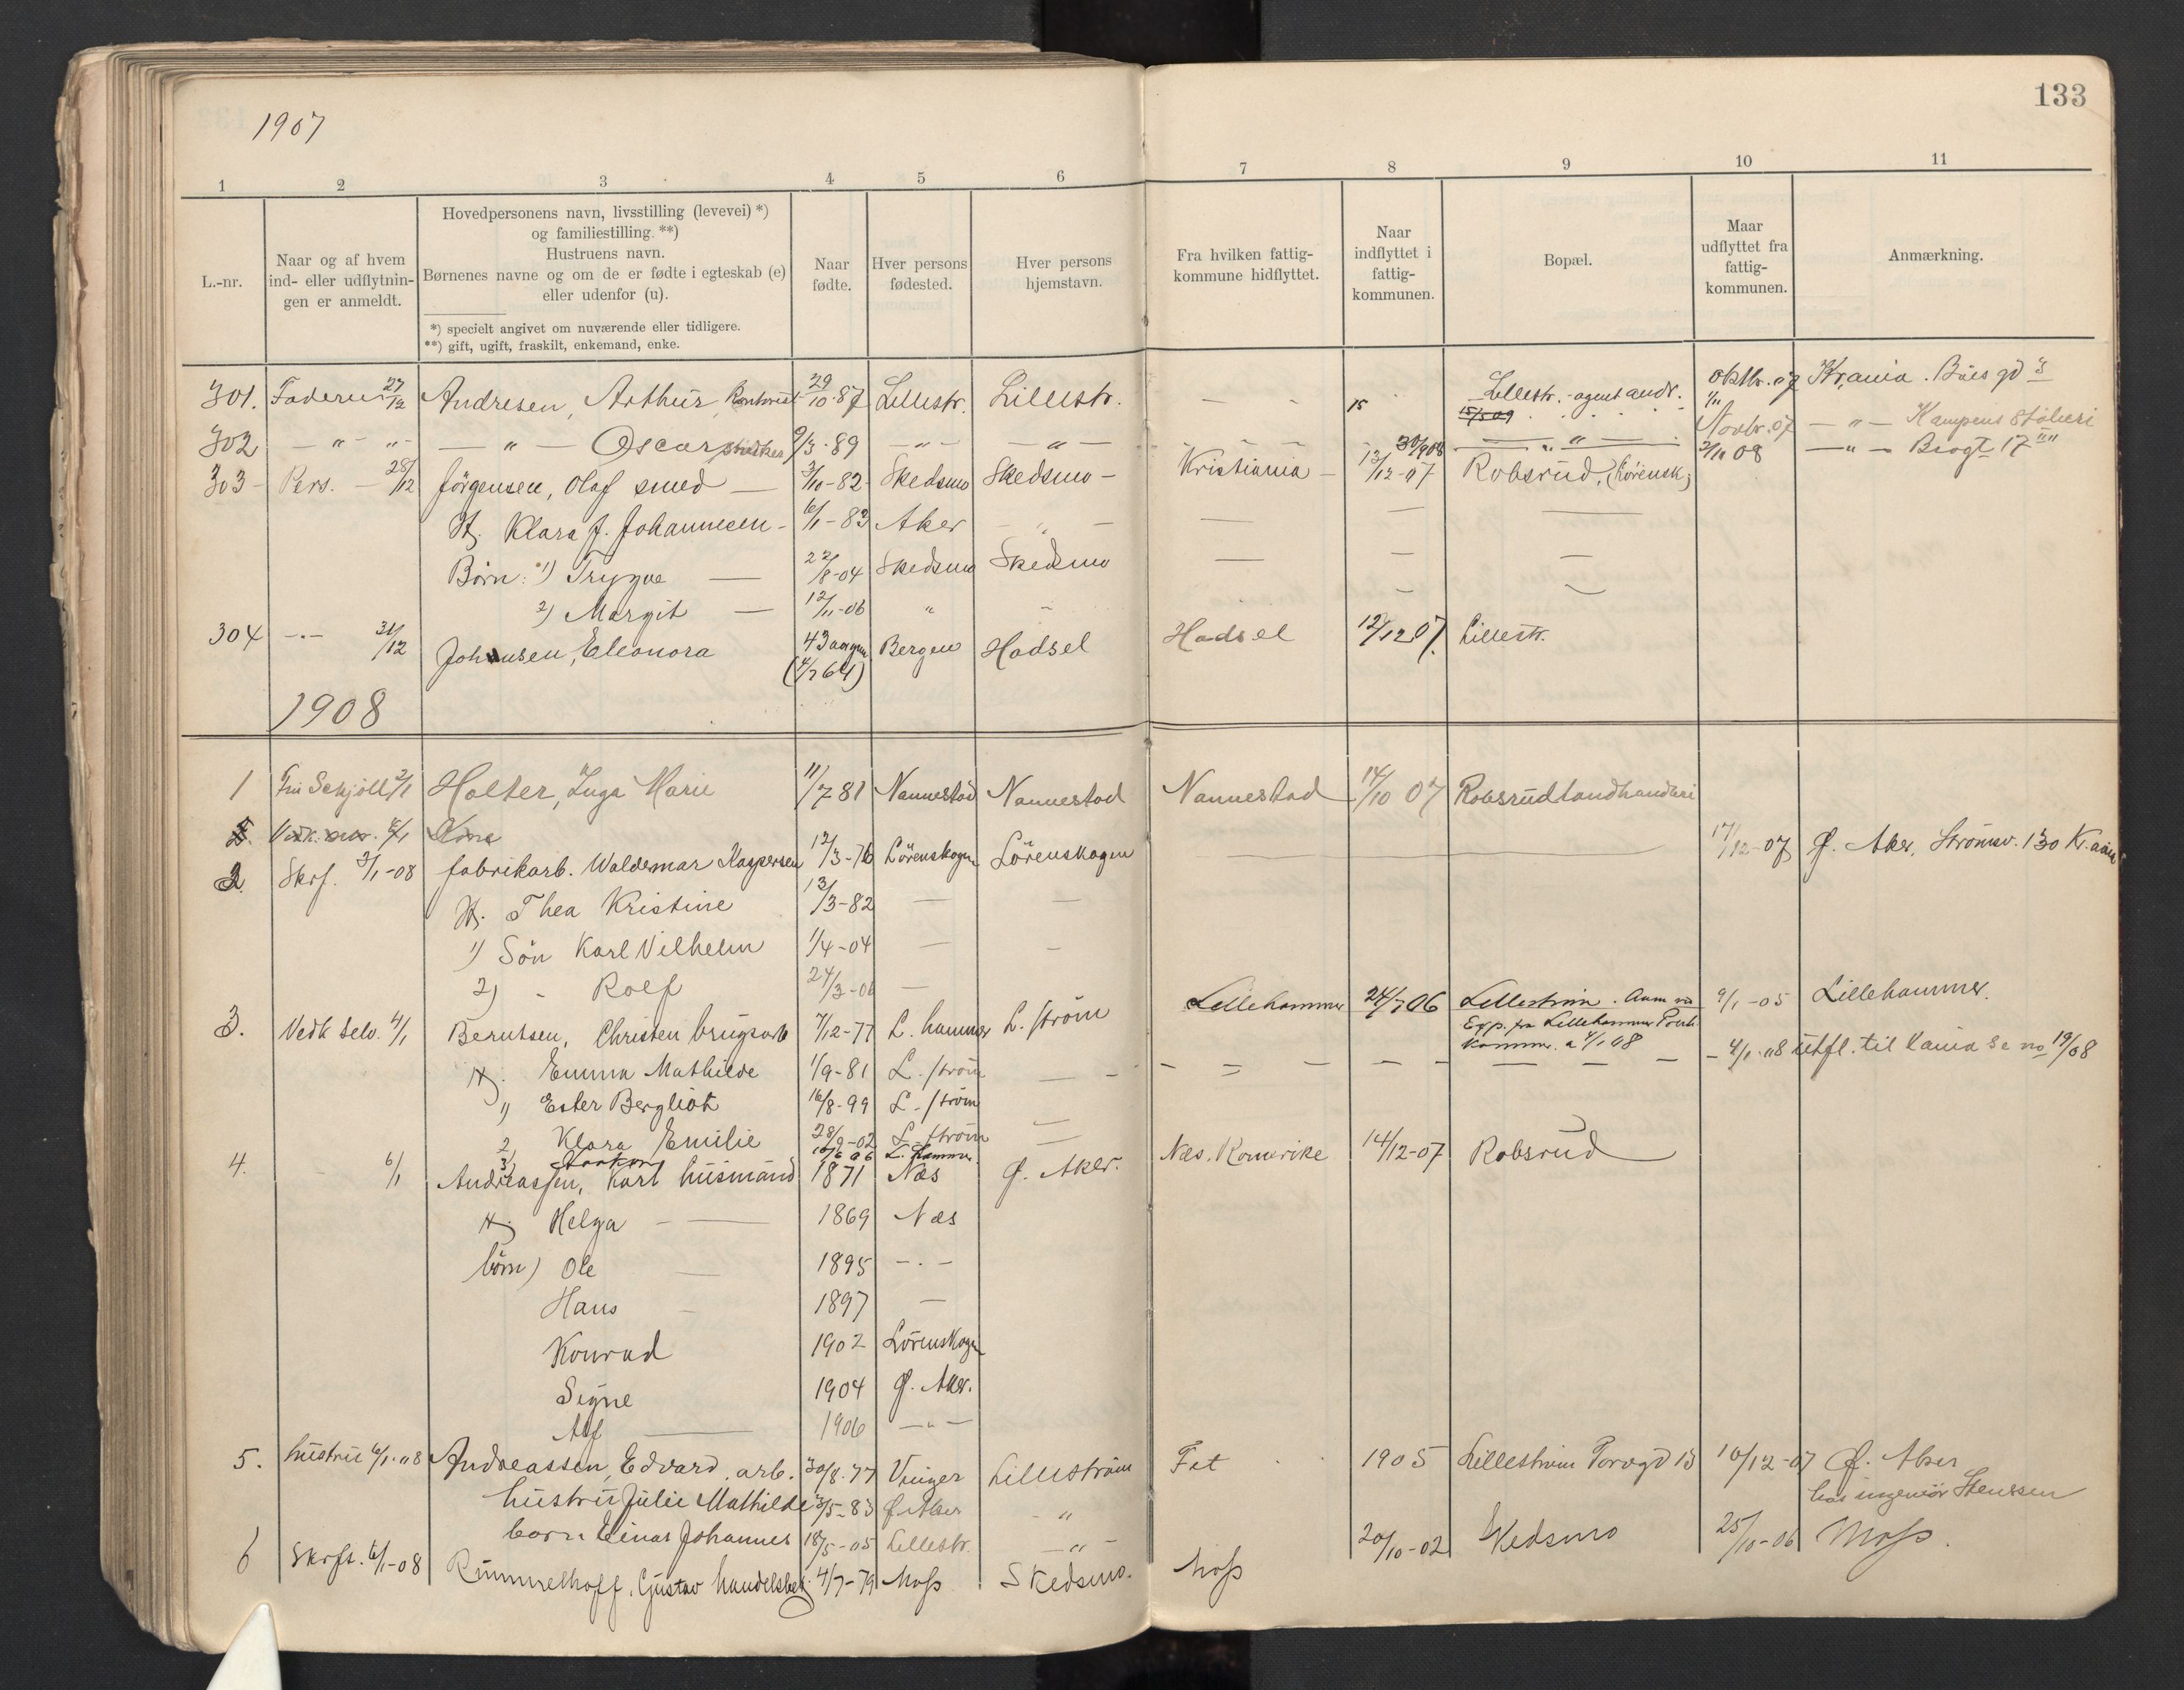 1907
133
1 2 3 4 5 6 7 8 9 10 11
L.-nr.
Naar og af hvem
ind- eller udflytnin-
gen er anmeldt.
Hovedpersonens navn, livsstilling (levevei) *)
og familiestilling. **)
Hustruens navn.
Børnenes navne og om de er fødte i egteskab (e)
eller udenfor (u).
*) specielt angivet om nuværende eller tidligere.
**) gift, ugift, fraskilt, enkemand, enke.
Naar
fødte.
Hver persons
fødested.
Hver persons
hjemstavn.
Fra hvilken fattig-
kommune hidflyttet.
Naar
indflyttet i
fattig-
kommunen.
Bopæl.
Maar
udflyttet fra
fattig-
kommunen.
Anmærkning.
301. Faderen 27/12 Andresen, Arthur 29/10-87 Lillestr. Lillestr. - - 15 Lillestr. - agent andr. 15/5 09 oktbr. 07 1/11 Kr,ania.
302 -"- "- -"- Oscar 9/3-89 -"- -"- - - - 30/9 08 -"- Novbr. 07 2/11 08 -"- Kampens -"- 17
303 - Pers. - 28/12 Jörgensen, Olaf smed - 3/10-82 Skedsmo Skedsmo - Kristiania - 13/12-07 Robsrud, (Lörensk;
H. Klara J. Johannesen - 6/1-83 Aker - " - - - -
Börn: 1) Trygve - 22/8-04 Skedsmo Skedsmo - - -
2) Margit - 12/11-06 " -
304 -"- 31/12 Johansen, Eleonora 43 aar gm (4/7 64) Bergen Hadsel Hadsel 12/12 07. Lillestr.
1908
1 Schjöll 2/1 Holter, Inga Marie 11/7 81 Nannestad Nannestad Nannestad 14/10 07 Robsrud landhandleri
2. Skrf. 3/1-08 fabrikarb. Waldemar Kaspersen 12/3-76 Lörenskogen Lörenskogen - 17/12-07 Ø. Aker, Strömsv. 130 Kr.ania
H. Thea Kristine 13/3-82 - -
1) Sön Karl Vilhelm 1/4-04 - -
2) - Rolf 24/3-06 -
3. Vedk selv. 4/1 Berntsen, Christen brugsarb 7/12-77 L. hammer L. ström Lillehammer 24/7 06 Lilleström. Anm
Exp. fra Lillehammer
Komm. a 4/1 08
9/1-05 Lillehammer.
H. Emma Mathilde 1/9-81 L. ström - - - = - - - - - - 4/1-08 utfl. til Kania se no 19/08
1) Ester Bergliot 16/8-99 L. ström
2, Klara Emilie 28/9-02 L. ström -
3, Haakon 10/6 06 L. hammer
4. 6/1 Andreassen, Karl husmand 1871 Næs Ø. Aker. Næs, Romerike 14/12-07 Robsrud
H. Helga - 1869 Næs
börn) Ole - 1895 -"-
Hans - 1897 -
Konrad 1902 Lörenskogen
Signe 1904 Ø. Aker.
Alf - 1906 -"-
5. hustru 6/1-08 Andreassen, Edvard, arb. 30/8-77 Vinger Lilleström Fet 1905 Lilleström Torvgd 13 10/12-07 Ø. Aker
hos ingeniör Stenssen
hustru Julie Mathilde 3/5-83 Ø Aker - "
barn Einar Johannes 18/5-05 Lillestr. -"-
6 Skrft. 6/1-08 Rummelhoff, Gustav handelsbetj. 4/7-79 Moss Skedsmo. Moss 20/10-02 Skedsmo 25/10-06 Moss.